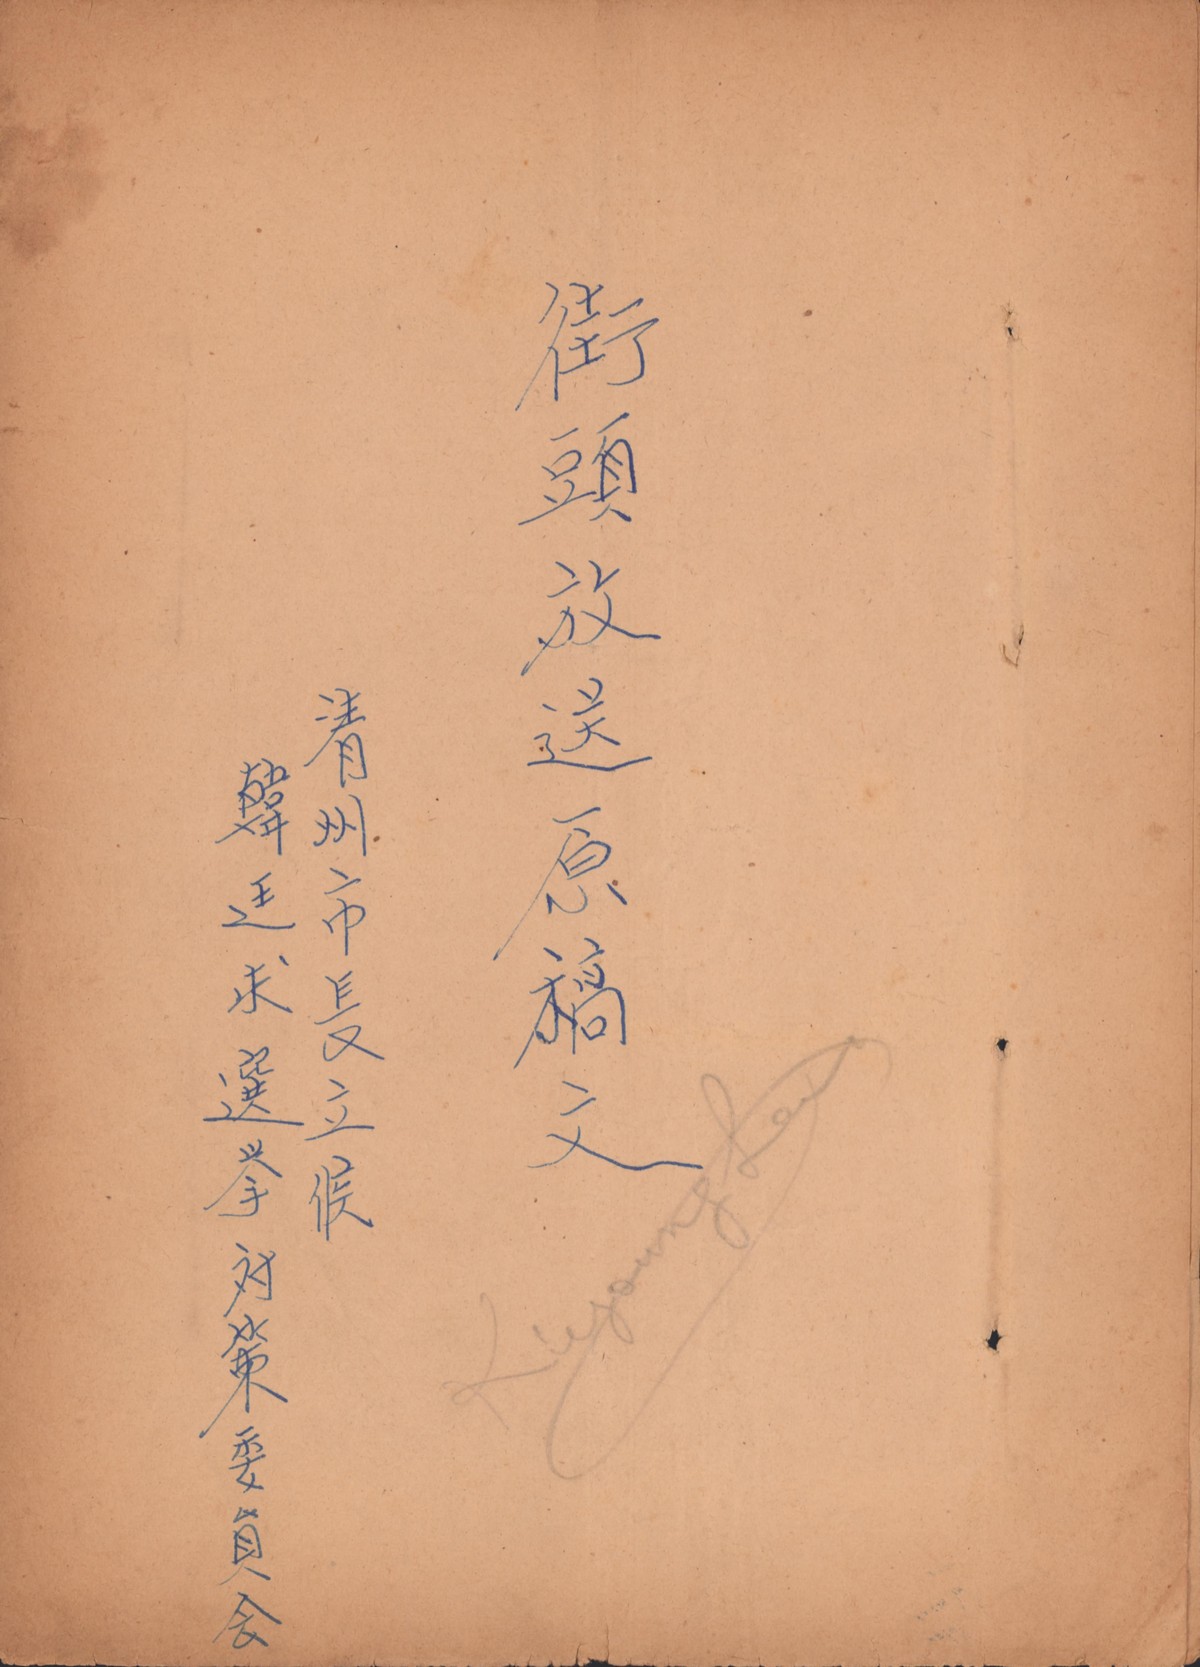 街頭放送原稿文
清州市長立候
韓廷求選挙対策委員会